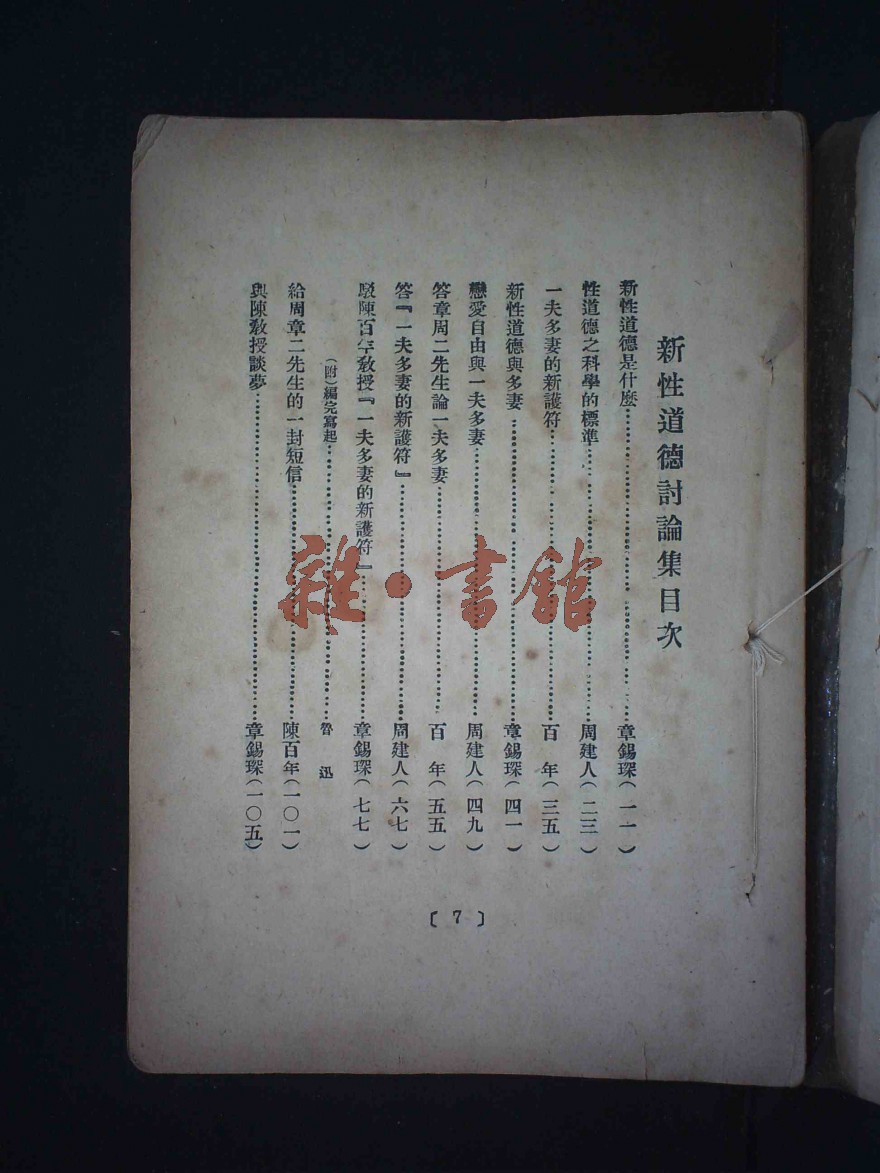 新性道德討論集目次
新性道德是什麼……章錫琛(一一)
性道德之科學的標準……周建人(二三)
一夫多妻的新護符……百　年(三五)
新性道德與多妻……章錫琛(四一)
戀愛自由與一夫多妻……周建人(四九)
答章周二先生論一夫多妻……百　年(五五)
答『一夫多妻的新護符』……周建人(六七)
駁陳百年敎授『一夫多妻的新護符』……章錫琛(七七)
(附)編完寫起……魯　迅
給周章二先生的一封短信……陳百年(一〇一)
與陳敎授談夢……章錫琛(一〇五)
〔7〕
雜·書館